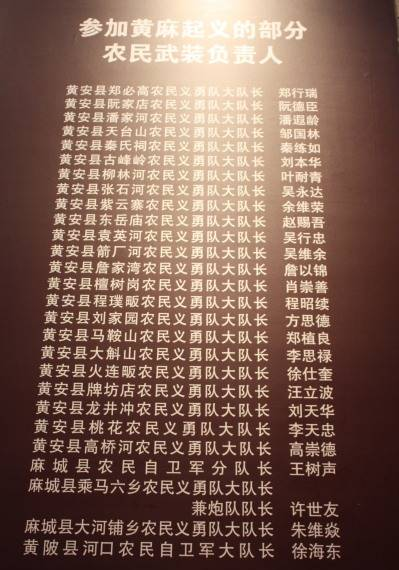 参加黄麻起义的部分
农民武装负责人
黄安县郑必高农民义勇队大队长 郑行瑞
黄安县阮家店农民义勇队大队长 阮德臣
黄安县潘家河农民义勇队大队长 潘遐龄
黄安县天台山农民义勇队大队长 邹国林
黄安县秦氏祠农民义勇队大队长 秦练如
黄安县古峰岭农民义勇队大队长 刘本华
黄安县柳林河农民义勇队大队长 叶耐青
黄安县张石河农民义勇队大队长 吴永达
黄安县紫云寨农民义勇队大队长 余维荣
黄安县东岳庙农民义勇队大队长 赵赐吾
黄安县袁英河农民义勇队大队长 吴行忠
黄安县箭厂河农民义勇队大队长 吴维余
黄安县詹家湾农民义勇队大队长 詹以锦
黄安县檀树岗农民义勇队大队长 肖崇善
黄安县程璞畈农民义勇队大队长 程昭续
黄安县刘家园农民义勇队大队长 方思德
黄安县马鞍山农民义勇队大队长 郑植良
黄安县大斛山农民义勇队大队长 李思禄
黄安县火连畈农民义勇队大队长 徐仕奎
黄安县牌坊店农民义勇队大队长 汪立波
黄安县龙井冲农民义勇队大队长 刘天华
黄安县桃花农民义勇队大队长 李天忠
黄安县高桥河农民义勇队大队长 高崇德
麻城县农民自卫军分队长 王树声
麻城县乘马六乡农民义勇队大队长
兼炮队队长 许世友
麻城县大河铺乡农民义勇队大队长 朱维焱
黄陂县河口农民自卫军大队长 徐海东